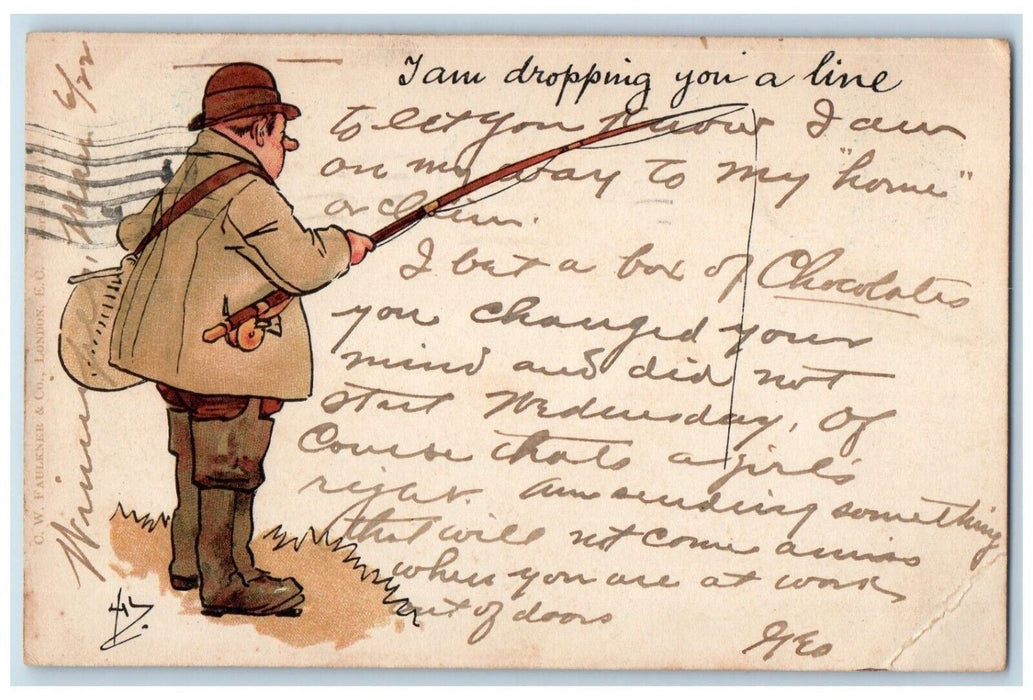 I am dropping you a line
to let you know I am
on my way to my "home"
or claim.
I bet a box of Chocolates
you changed your
mind and did not
start Wednesday, Of
Course thats a girl's
right. Am sending something
that will not come amiss
when you are at work
out of doors
6/22
C. W. FAULKNER & CO., LONDON, E.C.